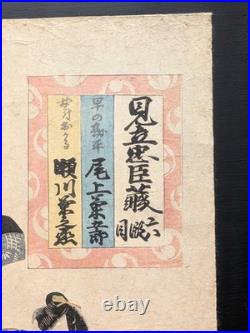 見立忠臣蔵
六段目
早の勘平
尾上菊五郎
女房おかる
瀬川菊之丞